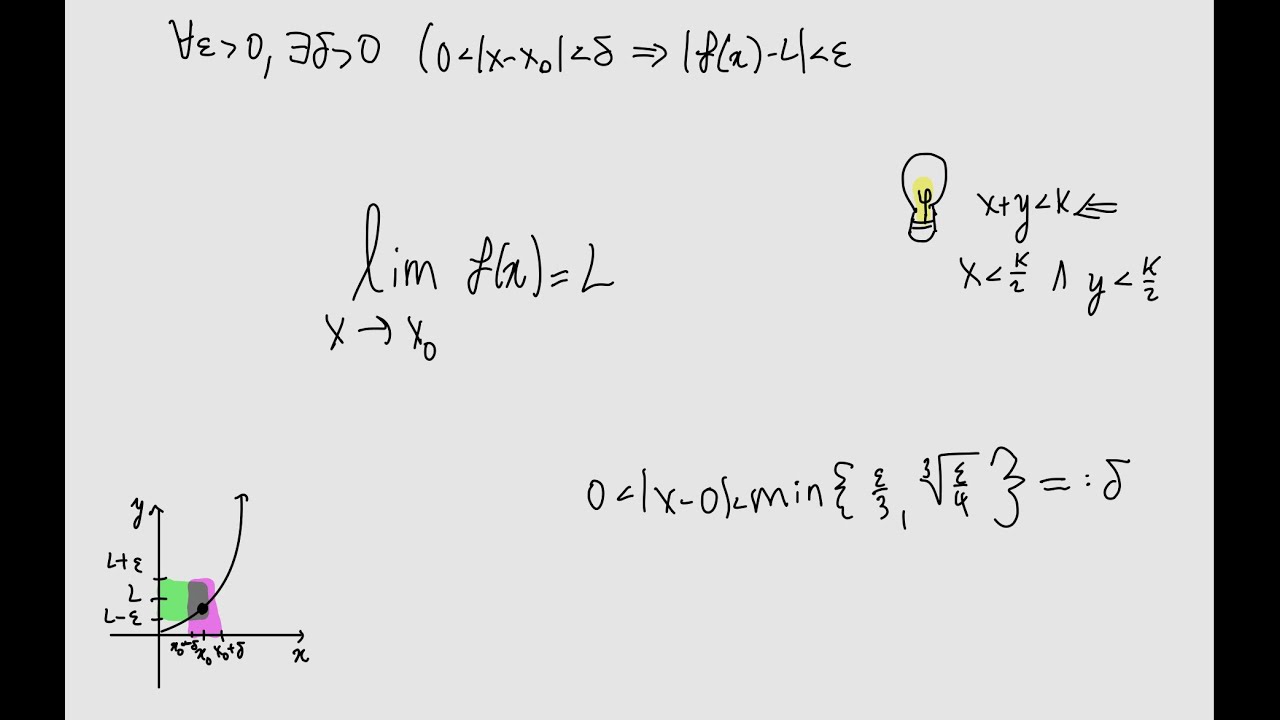 ∀ε>0, ∃δ>0 (0<|x-x₀|<δ ⇒ |f(x)-L|<ε
x+y<K ⇐
x<K/2 ∧ y<K/2
lim f(x)=L
x→x₀
0<|x-0|<min{ε/3, ∛(ε/4)}=:δ
y
L+ε
L
L-ε
x₀-δ x₀ x₀+δ
x